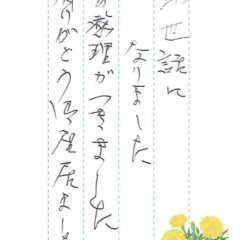 世話に
なりました
の整理がつきました
りがとう御座居まし